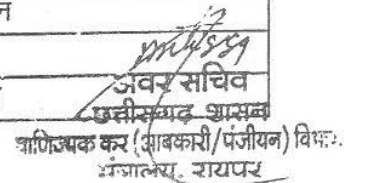 न
अवर सचिव
छत्तीसगढ़ शासन
वाणिज्यिक कर (आबकारी/पंजीयन) विभाग
मंत्रालय, रायपुर